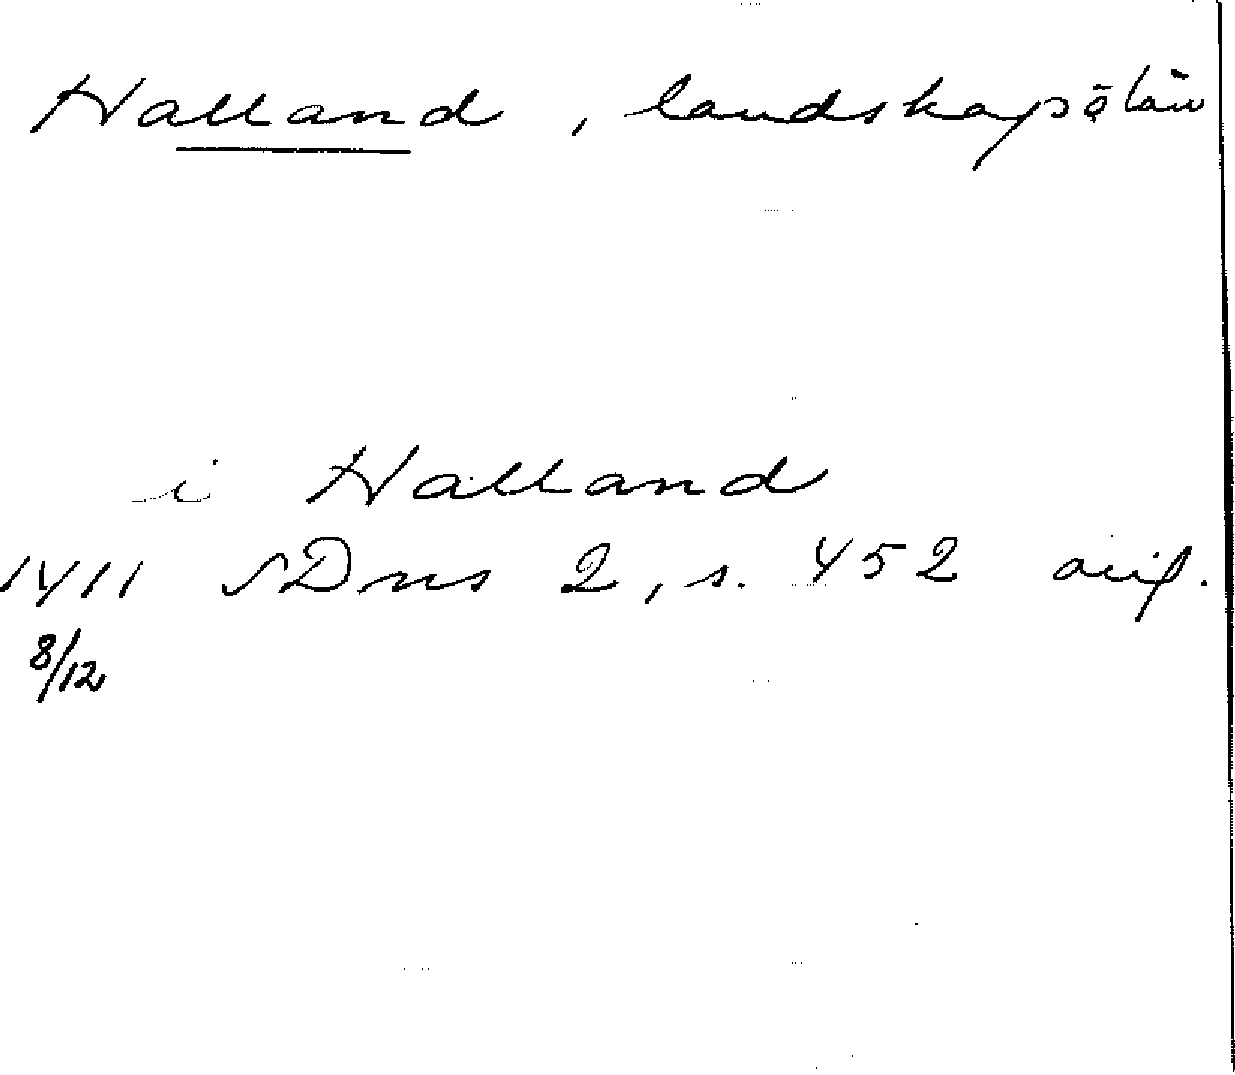 Halland, landskap o län
i Halland
1411 SDns 2, s. 452 avif.
8/12